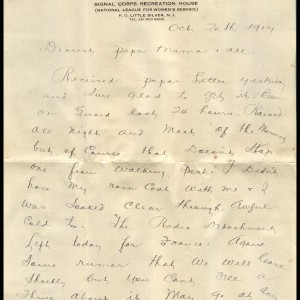 SIGNAL CORPS RECREATION HOUSE
(NATIONAL LEAGUE FOR WOMEN'S SERVICE)
P. O. LITTLE SILVER, N. J.
Oct, 20th 1917
Dearest papa mama & all.
Received papas letter yesterday
and sure glad to get it. Been
on Guard last 24 hours. Rained
all night and most of the morning
but of course that doesn't stop
one from walking post. I didn't
have my rain coat with me & I
was soaked clear through. Awful
cold to. The Radio Detachment
left today for France. Again
some rumor that we will leave
shortly but you cant tell a
thing about it. May go at any